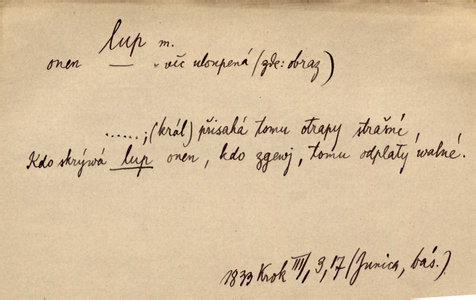 lup m.
onen — věc uloupená (zde: obraz)
......; (král) přisahá tomu otrapy strašné,
Kdo skrývá lup onen, kdo zgewj, tomu odplatý walné.
1833 Krok III/1, 9, 17 (Junica, bás.)